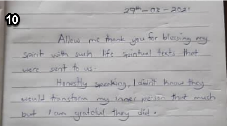 10
29th-02-2021
Allow me thank you for blessing my
spirit with such life spiritual texts, that
were sent to us.
Honestly speaking, I didn't know they
would transform my inner person that much
but I am grateful they did.